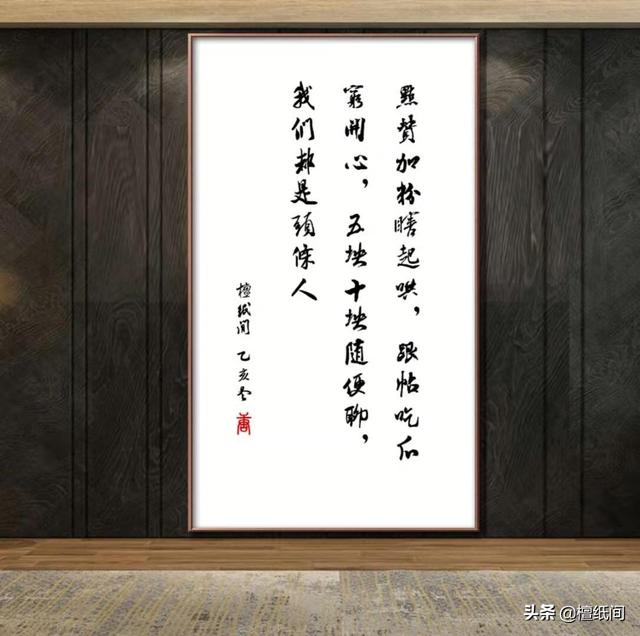 點赞加粉瞎起哄，跟帖吃瓜
窮開心，五块十块随便聊，
我们都是頭條人
檀纸间 乙亥冬
头条 @檀纸间